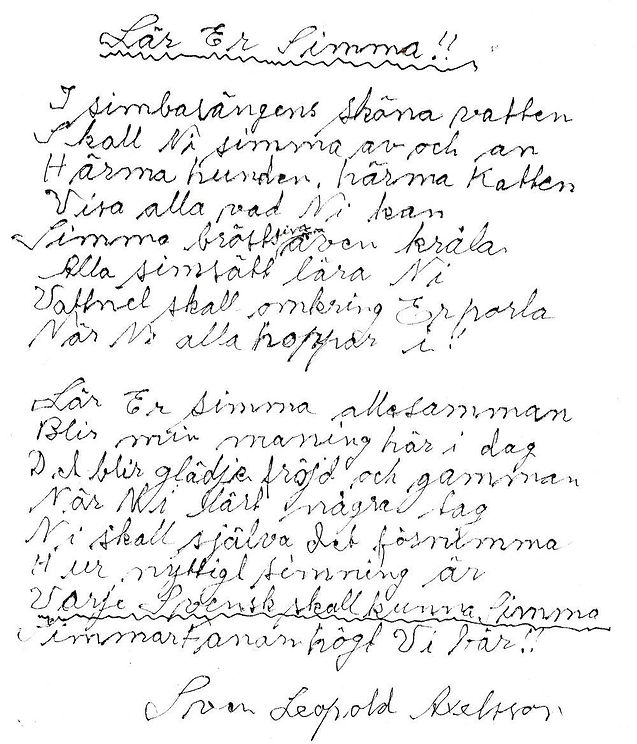 Lär Er Simma!!
I simbasängens sköna vatten
Skall Ni simma av och an
Härma hunden, härma Katten
Visa alla vad Ni kan
Simma bröstsim även kråla
Alla simsätt lära Ni
Vattnet skall omkring Er porla
När Ni alla hoppar i!!
Lär Er simma allesamman
Blir min maning här i dag
Det blir glädje fröjd och gamman
När Ni lärt några tag
Ni skall själva det förnimma
Hur nyttigt simning är
Varje Svensk skall kunna Simma
Simmarfanan högt Vi bär!!
Sven Leopold Axelsson